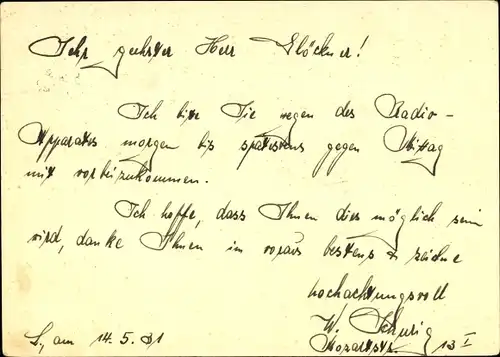 Sehr geehrter Herr Glöckner!
Ich bitte Sie wegen des Radio-
Apparates morgen bis spätestens gegen Mittag
mit vorbeizukommen.
Ich hoffe, dass Ihnen dies möglich sein
wird, danke Ihnen im voraus bestens & zeichne
hochachtungsvoll
W. Schurig
L., am 14.5.31 Mozartstr. 13 I